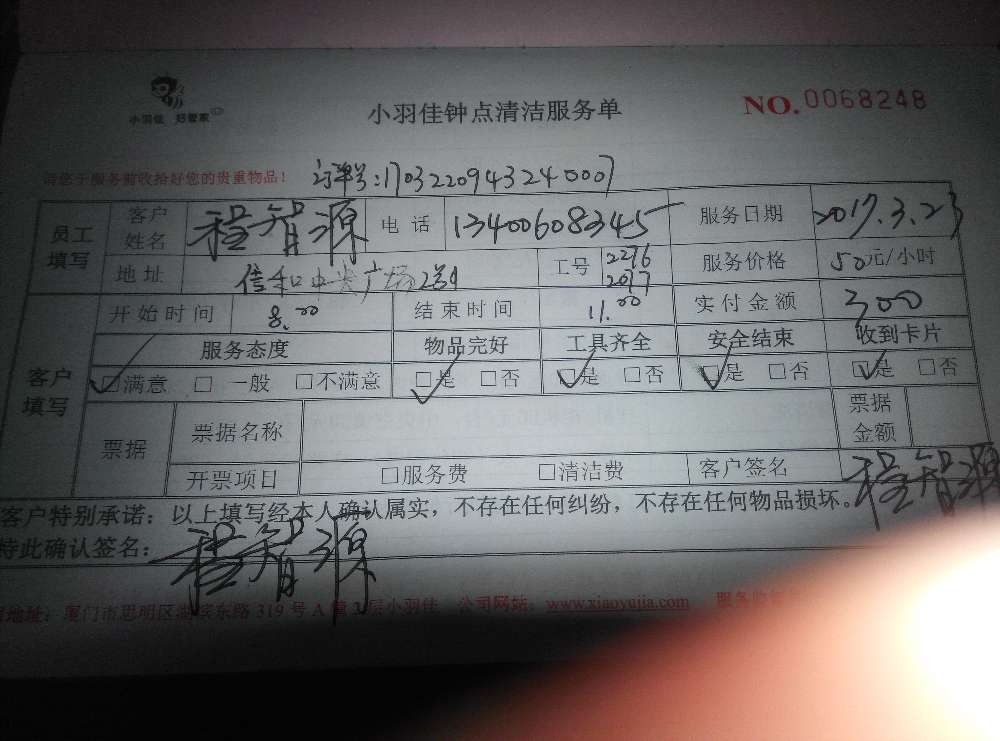 小羽佳 好管家
小羽佳钟点清洁服务单
NO. 0068248
请您于服务前收拾好您的贵重物品!
订单号:1703220943240007
员工填写
客户姓名 程智源 电话 13400608345 服务日期 2017.3.23
地址 信和中央广场2号9 工号 2276 2097 服务价格 50元/小时
开始时间 8.00 结束时间 11.00 实付金额 300
客户填写
服务态度 物品完好 工具齐全 安全结束 收到卡片
☑满意 □一般 □不满意 ☑是 □否 ☑是 □否 ☑是 □否 ☑是 □否
票据 票据名称 票据金额
开票项目 □服务费 □清洁费 客户签名 程智源
客户特别承诺:以上填写经本人确认属实,不存在任何纠纷,不存在任何物品损坏。
特此确认签名: 程智源
地址:厦门市思明区湖滨东路319号A 3层小羽佳 公司网站:www.xiaoyujia.com 服务监